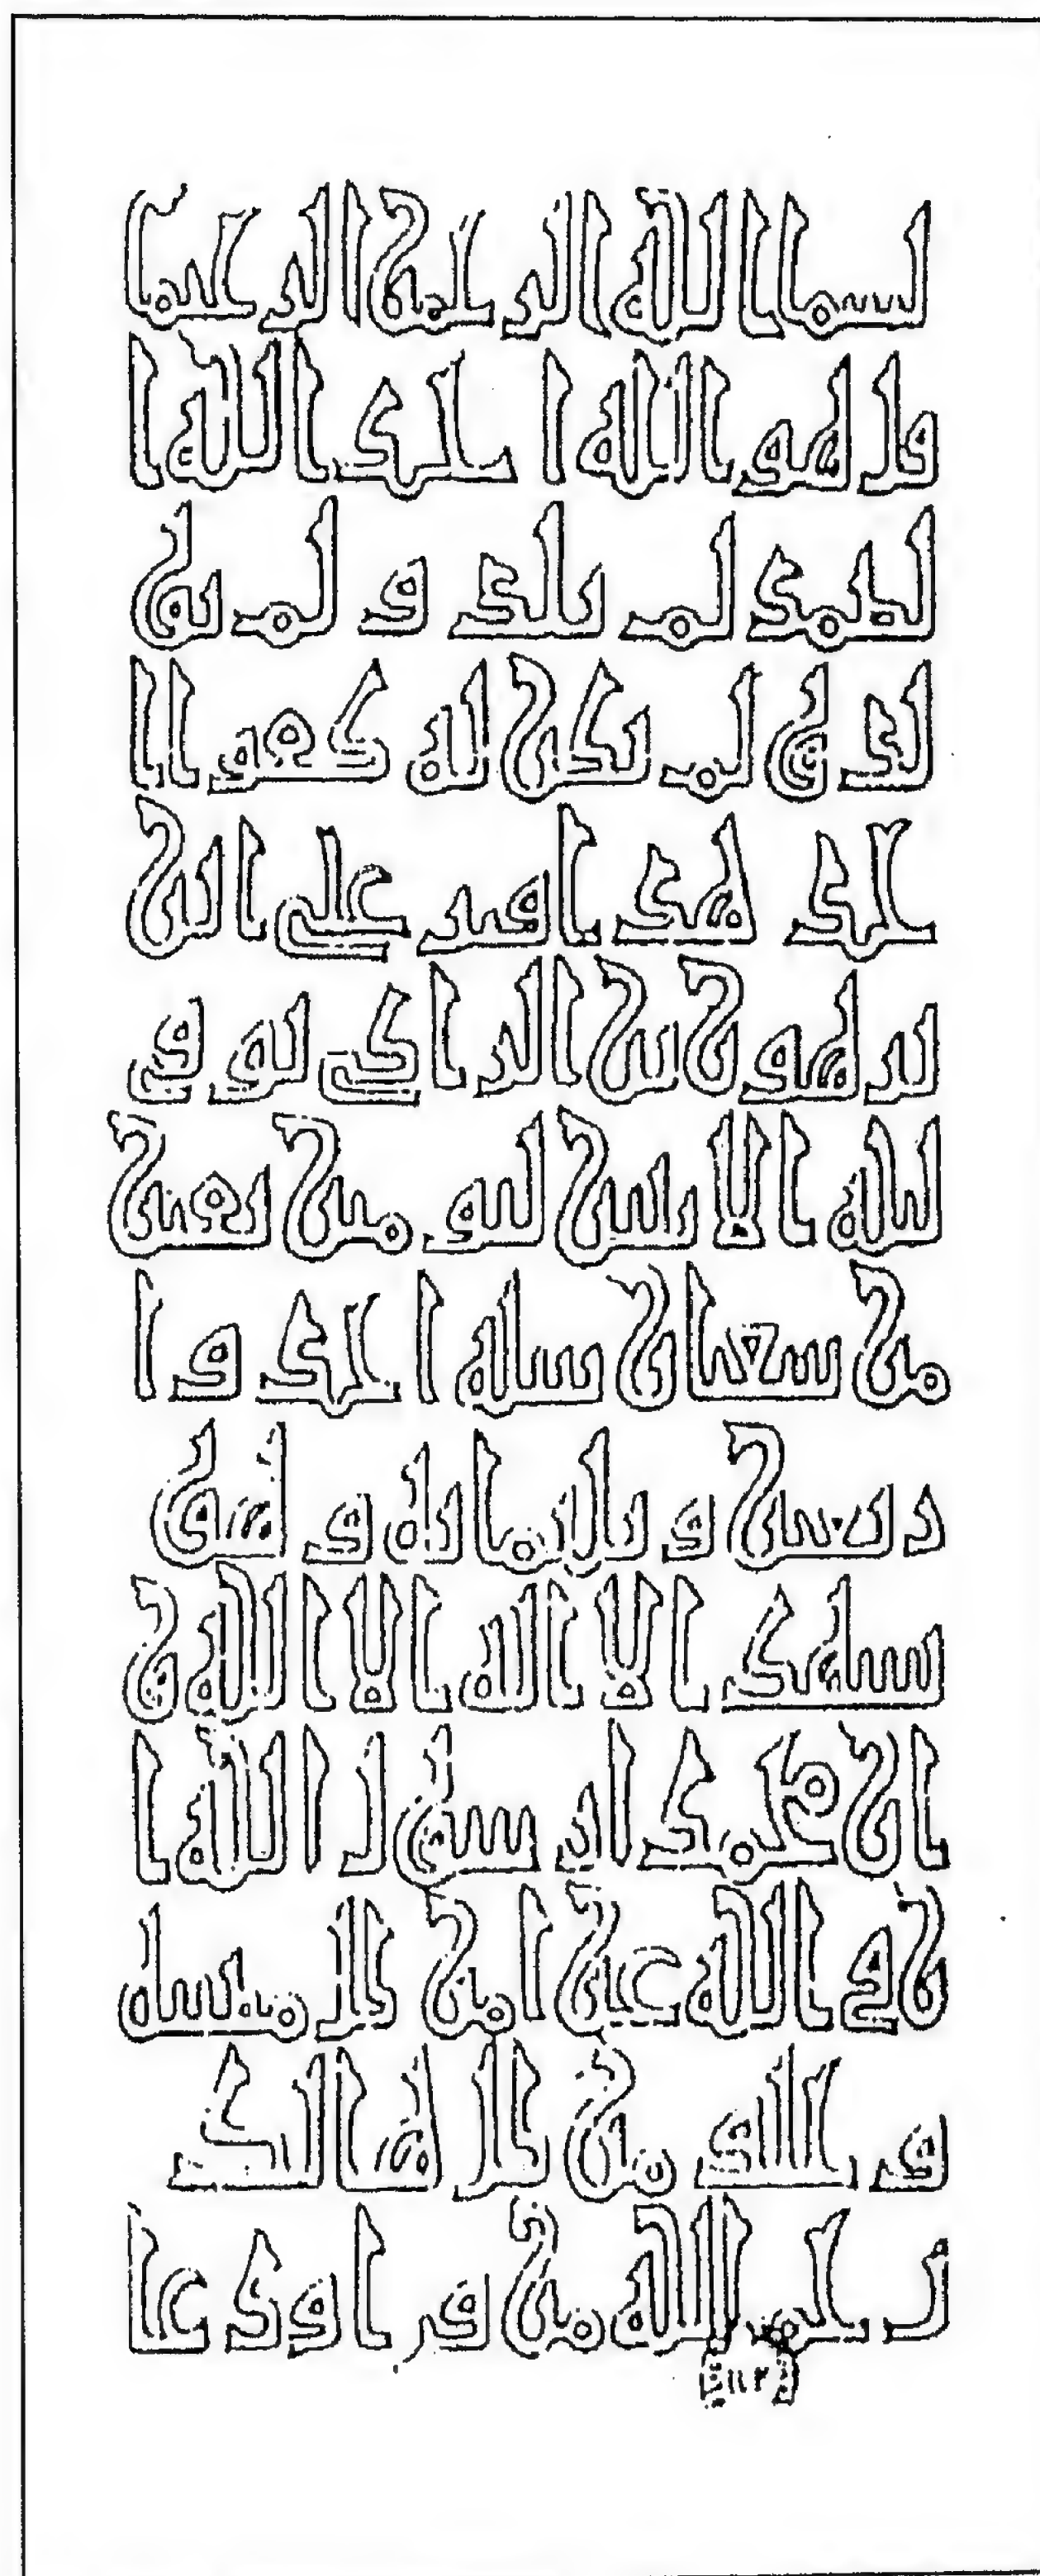 بسم الله الرحمن الرحيم
قل هو الله احد الله ا
لصمد لم يلد و لم يو
لد و لم يكن له كفوا ا
حد هذا قبر علي ابن
برهون بن توفي
ليلة الاثنين بقين
من شعبان سنة احد و ا
ربعين و اربعماية و هو
يشهد الا اله الا الله و
ان محمدا رسول الله ا
ن في الله عزا من كل مصيبه
و خلف من كل هالك
رحم الله من قرا ودعا